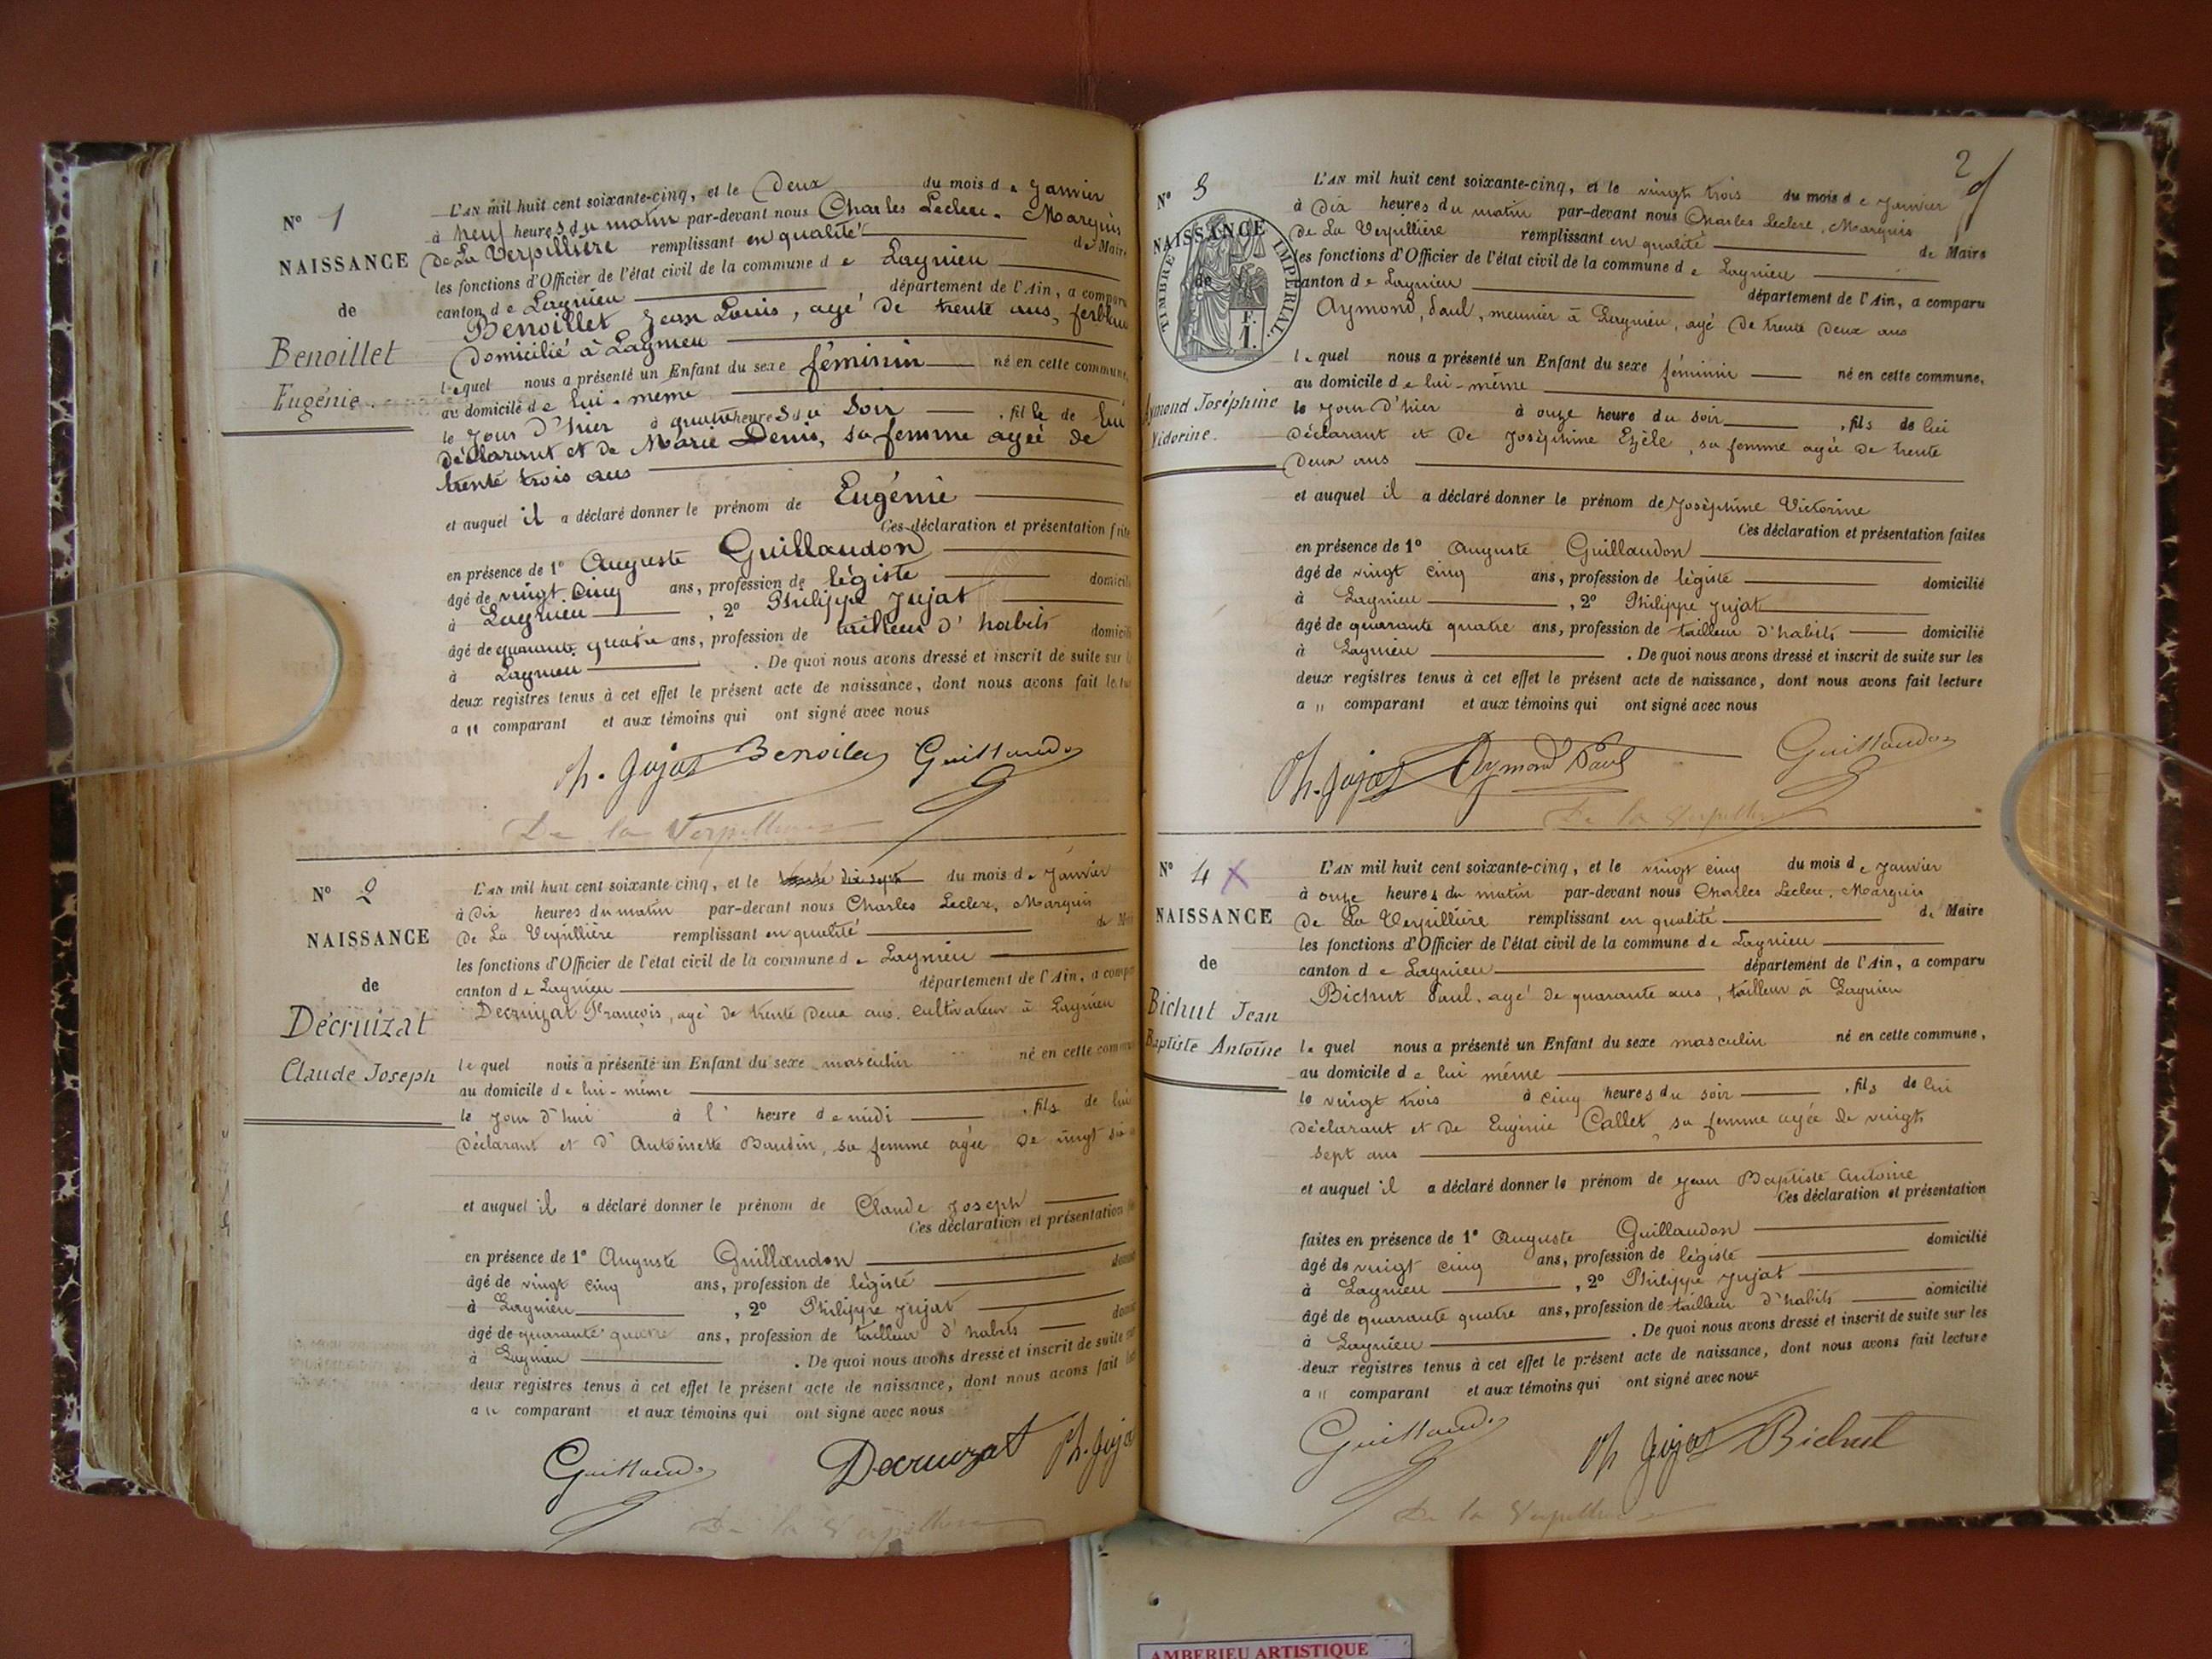 N° 1
NAISSANCE
de
Benoillet
Eugénie
L'AN mil huit cent soixante-cinq, et le Deux du mois de Janvier
à neuf heures du matin par-devant nous Charles Leclerc, Marquis
de La Verpillière remplissant en qualité de Maire
les fonctions d'Officier de l'état civil de la commune de Lagnieu
canton de Lagnieu département de l'Ain, a comparu
Benoillet Jean Louis, agé de trente ans,
Domicilié à Lagnieu
lequel nous a présenté un Enfant du sexe féminin né en cette commune,
au domicile de lui-même
le jour d'hier à quatre heures du soir, fille de lui
déclarant et de Marie Denis, sa femme agée de
trente trois ans
et auquel il a déclaré donner le prénom de Eugénie
Ces déclaration et présentation
en présence de 1° Auguste Guillaudon
âgé de vingt cinq ans, profession de légiste
à Lagnieu, 2° Philippe Jujat
âgé de quarante quatre ans, profession de tailleur d'habits
à Lagnieu. De quoi nous avons dressé et inscrit de suite sur
deux registres tenus à cet effet le présent acte de naissance, dont nous avons fait
a " comparant et aux témoins qui ont signé avec nous
Ph. Jujat Benoillet Guillaudon
De la Verpillière
N° 2
NAISSANCE
de
Décruizat
Claude Joseph
L'AN mil huit cent soixante-cinq, et le dix sept du mois de Janvier
à Dix heures du matin par-devant nous Charles Leclerc, Marquis
de La Verpillière remplissant en qualité
les fonctions d'Officier de l'état civil de la commune de Lagnieu
canton de Lagnieu département de l'Ain, a
Decruizat François, agé de trente deux ans, cultivateur à Lagnieu
lequel nous a présenté un Enfant du sexe masculin né en cette
au domicile de lui-même
le jour d'hui à l' heure de midi, fils de lui
déclarant et d'Antoinette Baudin, sa femme agée de vingt
et auquel il a déclaré donner le prénom de Claude Joseph
Ces déclaration et présentation
en présence de 1° Auguste Guillaudon
âgé de vingt cinq ans, profession de légiste
à Lagnieu, 2° Philippe Jujat
âgé de quarante quatre ans, profession de tailleur d'habits
à Lagnieu. De quoi nous avons dressé et inscrit de suite
deux registres tenus à cet effet le présent acte de naissance, dont nous avons fait
a " comparant et aux témoins qui ont signé avec nous
Guillaudon Decruizat Ph. Jujat
De la Verpillière
2
N° 3
NAISSANCE
de
TIMBRE IMPERIAL.
F.
1.
Aymond Joséphine
Victorine.
L'AN mil huit cent soixante-cinq, et le vingt trois du mois de Janvier
à Dix heures du matin par-devant nous Charles Leclerc, Marquis
de La Verpillière remplissant en qualité de Maire
les fonctions d'Officier de l'état civil de la commune de Lagnieu
canton de Lagnieu département de l'Ain, a comparu
Aymond, Paul, meunier à Lagnieu, agé de trente deux ans
lequel nous a présenté un Enfant du sexe féminin né en cette commune,
au domicile de lui-même
le jour d'hier à onze heure du soir, fils de lui
déclarant et de Joséphine, sa femme agée de trente
deux ans
et auquel il a déclaré donner le prénom de Joséphine Victorine
Ces déclaration et présentation faites
en présence de 1° Auguste Guillaudon
âgé de vingt cinq ans, profession de légiste domicilié
à Lagnieu, 2° Philippe Jujat
âgé de quarante quatre ans, profession de tailleur d'habits domicilié
à Lagnieu. De quoi nous avons dressé et inscrit de suite sur les
deux registres tenus à cet effet le présent acte de naissance, dont nous avons fait lecture
a " comparant et aux témoins qui ont signé avec nous
Ph. Jujat Aymond Paul Guillaudon
De la Verpillière
N° 4 X
NAISSANCE
de
Bichut Jean
Baptiste Antoine
L'AN mil huit cent soixante-cinq, et le vingt cinq du mois de Janvier
à onze heures du matin par-devant nous Charles Leclerc, Marquis
de La Verpillière remplissant en qualité de Maire
les fonctions d'Officier de l'état civil de la commune de Lagnieu
canton de Lagnieu département de l'Ain, a comparu
Bichut Paul, agé de quarante ans, tailleur à Lagnieu
lequel nous a présenté un Enfant du sexe masculin né en cette commune,
au domicile de lui même
le vingt trois à cinq heures du soir, fils de lui
déclarant et de Eugénie Callet, sa femme agée de vingt
sept ans
et auquel il a déclaré donner le prénom de Jean Baptiste Antoine
Ces déclaration et présentation
faites en présence de 1° Auguste Guillaudon
âgé de vingt cinq ans, profession de légiste domicilié
à Lagnieu, 2° Philippe Jujat
âgé de quarante quatre ans, profession de tailleur d'habits domicilié
à Lagnieu. De quoi nous avons dressé et inscrit de suite sur les
deux registres tenus à cet effet le présent acte de naissance, dont nous avons fait lecture
a " comparant et aux témoins qui ont signé avec nous
Guillaudon Ph Jujat Bichut
De la Verpillière
AMBERIEU ARTISTIQUE